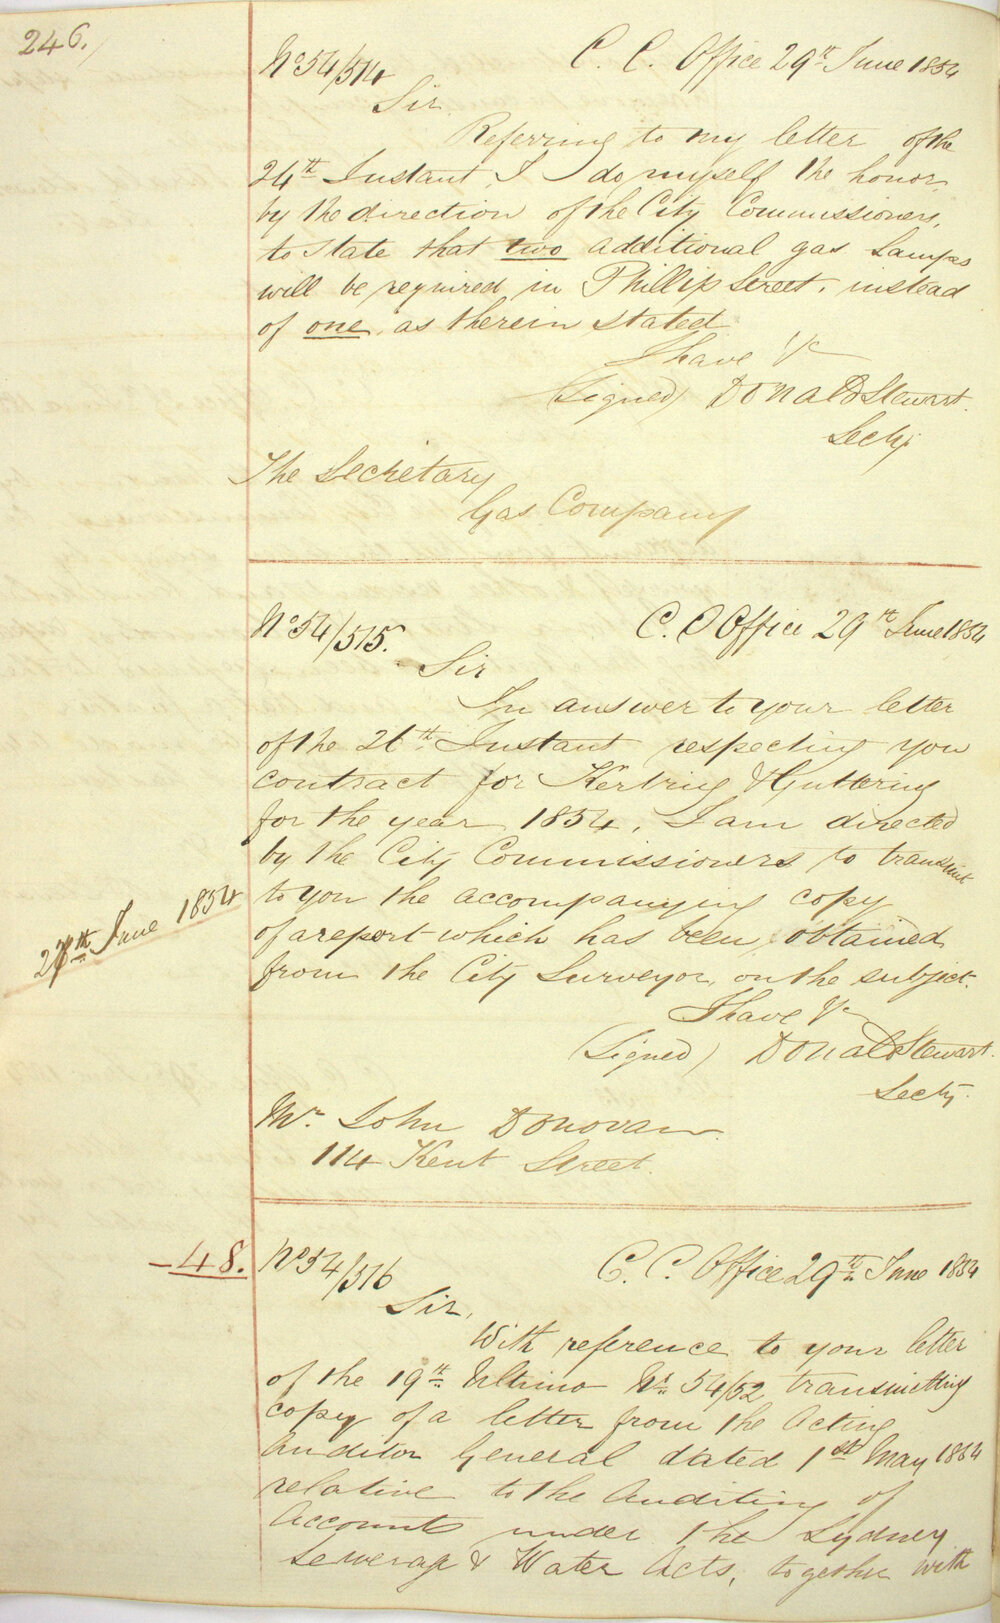 246.
No 54/514
C. C. Office 29th June 1854
Sir
Referring to my letter of the
24th Instant, I do myself the honor,
by the direction of the City Commissioners,
to state that two additional gas Lamps
will be required in Phillip Street, instead
of one, as therein stated
I have &c
(Signed) Donald Stewart.
Secty.
The Secretary
Gas Company
No 54/515.
C. C Office 29th June 1854
Sir
In answer to your letter
of the 26th Instant respecting you
contract for Kerbing & Guttering
for the year 1854, I am directed
by the City Commissioners to transmit
to you the accompanying copy
of a report which has been obtained
27th June 1854
from the City Surveyor, on the subject.
I have &c
(Signed) Donald Stewart.
Secty.
Mr John Donovan
114 Kent Street.
48.
No 54/516
C. C. Office 29th June 1854
Sir,
With reference to your letter
of the 19th Ultimo No. 54/52 transmitting
copy of a letter from the Acting
Auditor General dated 1st May 1854
relative to the Auditing of
Accounts under the Sydney
Sewerage & Water Acts, together with